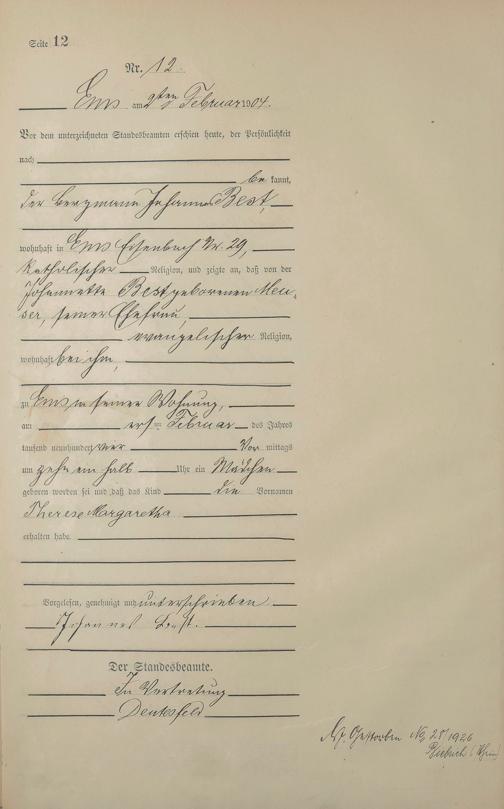 Seite 12
Nr. 12.
Ems am 2ten Februar 1904.
Vor dem unterzeichneten Standesbeamten erschien heute, der Persönlichkeit
nach
be kannt,
der Bergmann Johannes Best,
wohnhaft in Ems Eisenbach Nr. 29,
katholischer Religion, und zeigte an, daß von der
Johannette Best geborenen Meu-
ser, seiner Ehefrau,
evangelischer Religion,
wohnhaft bei ihm,
zu Ems in seiner Wohnung,
am ersten Februar des Jahres
tausend neunhundert vier Vor mittags
um zehn ein halb Uhr ein Mädchen
geboren worden sei und daß das Kind die Vornamen
Therese Margaretha
erhalten habe.
Vorgelesen, genehmigt und unterschrieben
Johannes Best.
Der Standesbeamte.
In Vertretung
Gestorben No 25/1926